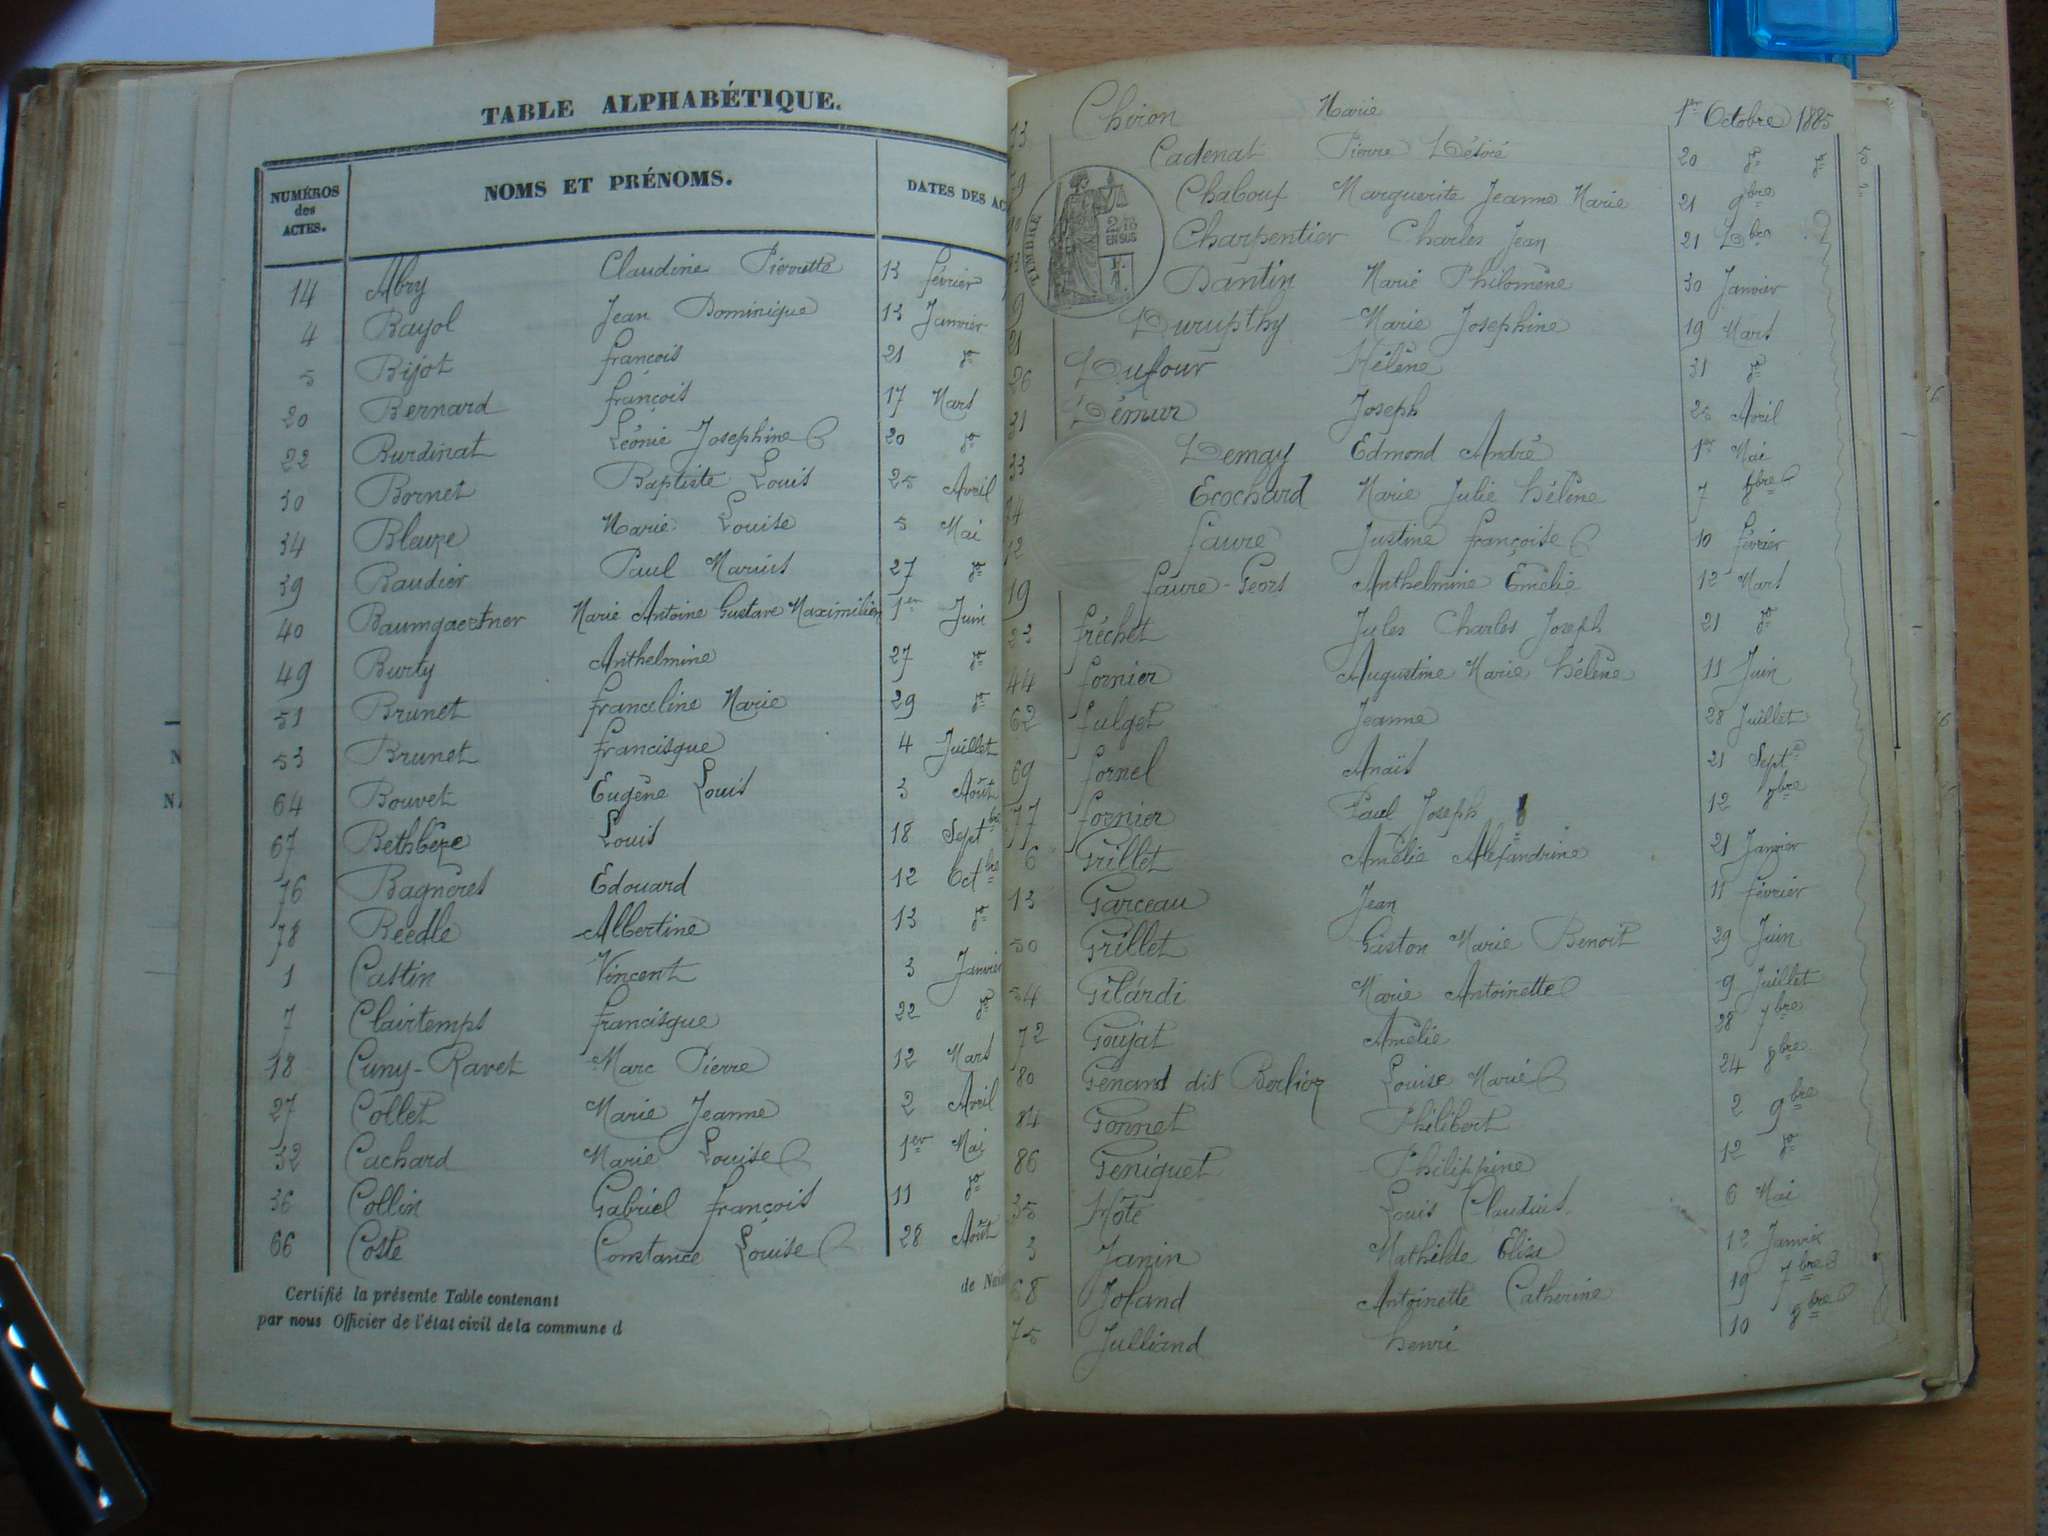 TABLE ALPHABÉTIQUE.
NUMÉROS des ACTES. NOMS ET PRÉNOMS. DATES DES AC
14 Abry Claudine Pierrette 13 février
4 Bayol Jean Dominique 13 Janvier
5 Bijot françois 21 do
20 Bernard françois 17 Mars
22 Burdinat Léonie Josephine 20 do
30 Bornet Baptiste Louis 25 Avril
34 Bleuze Marie Louise 5 Mai
39 Baudier Paul Marius 27 do
40 Baumgaertner Marie Antoine Gustave Maximilien 1er Juin
49 Burty Anthelmine 27 do
51 Brunet franceline Marie 29 do
53 Brunet francisque 4 Juillet
64 Bouvet Eugène Louis 3 Août
67 Bethbèze Louis 18 Septbre
76 Bagnères Edouard 12 Octbre
78 Beedle Albertine 13 do
1 Castin Vincent 3 Janvier
7 Clairtemps francisque 22 do
18 Cuny-Ravet Marc Pierre 12 Mars
27 Collet Marie Jeanne 2 Avril
32 Cachard Marie Louise 1er Mai
36 Collin Gabriel françois 11 do
66 Coste Constance Louise 28 Août
Certifié la présente Table contenant de
par nous Officier de l'état civil de la commune d
73 Chiron Marie 1er Octobre 1885
Cadenat Pierre Désiré 20 do do
Chaboux Marguerite Jeanne Marie 21 9bre
Charpentier Charles Jean 21 Dbre
TIMBRE
2/10 EN SUS
9 Dantin Marie Philomène 30 Janvier
21 Durupthy Marie Josephine 19 Mars
26 Dufour Hélène 31 do
31 Démur Joseph 25 Avril
33 Demay Edmond André 1er Mai
74 Ecochard Marie Julie hélène 7 8bre
12 faure Justine françoise 10 février
19 faure-Geors Anthelmine Emélie 12 Mars
23 fréchet Jules Charles Joseph 21 do
44 fornier Augustine Marie hélène 11 Juin
62 fulget Jeanne 28 Juillet
69 fornel Anaïs 21 Septe
77 fornier Paul Joseph 12 8bre
6 Grillet Amélie Alexandrine 21 Janvier
13 Garceau Jean 11 février
50 Grillet Gaston Marie Benoit 29 Juin
54 Gilardi Marie Antoinette 9 Juillet
72 Goujat Amélie 28 7bre
80 Genand dit Berlioz Louise Marie 24 8bre
84 Gonnet Philibert 2 9bre
86 Geniquet Philippine 12 do
35 Hôte Louis Claudius 6 Mai
3 Janin Mathilde Elisa 12 Janvier
68 Joland Antoinette Catherine 19 7bre
75 Julliand henri 10 8bre